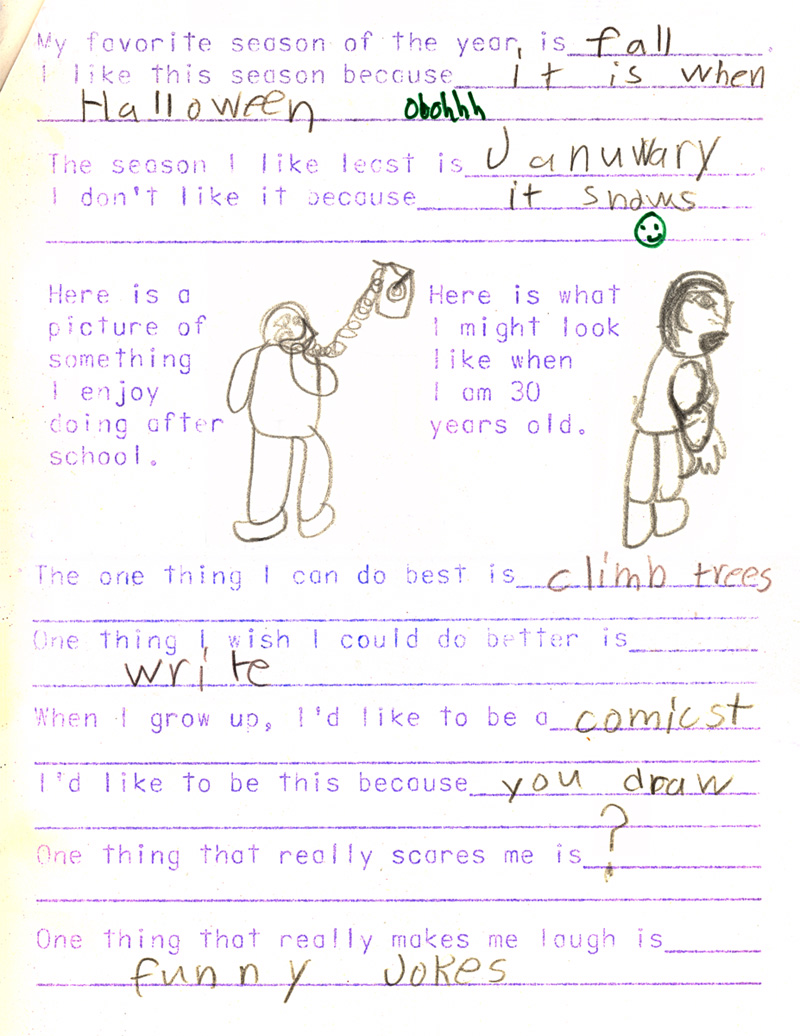 My favorite season of the year, is fall.
I like this season because it is when
Halloween Obohhh
The season I like least is Januwary.
I don't like it because it snows
Here is a
picture of
something
I enjoy
doing after
school.
Here is what
I might look
like when
I am 30
years old.
The one thing I can do best is climb trees
One thing I wish I could do better is
write
When I grow up, I'd like to be a comicst
I'd like to be this because you draw
One thing that really scares me is ?
One thing that really makes me laugh is
funny Jokes